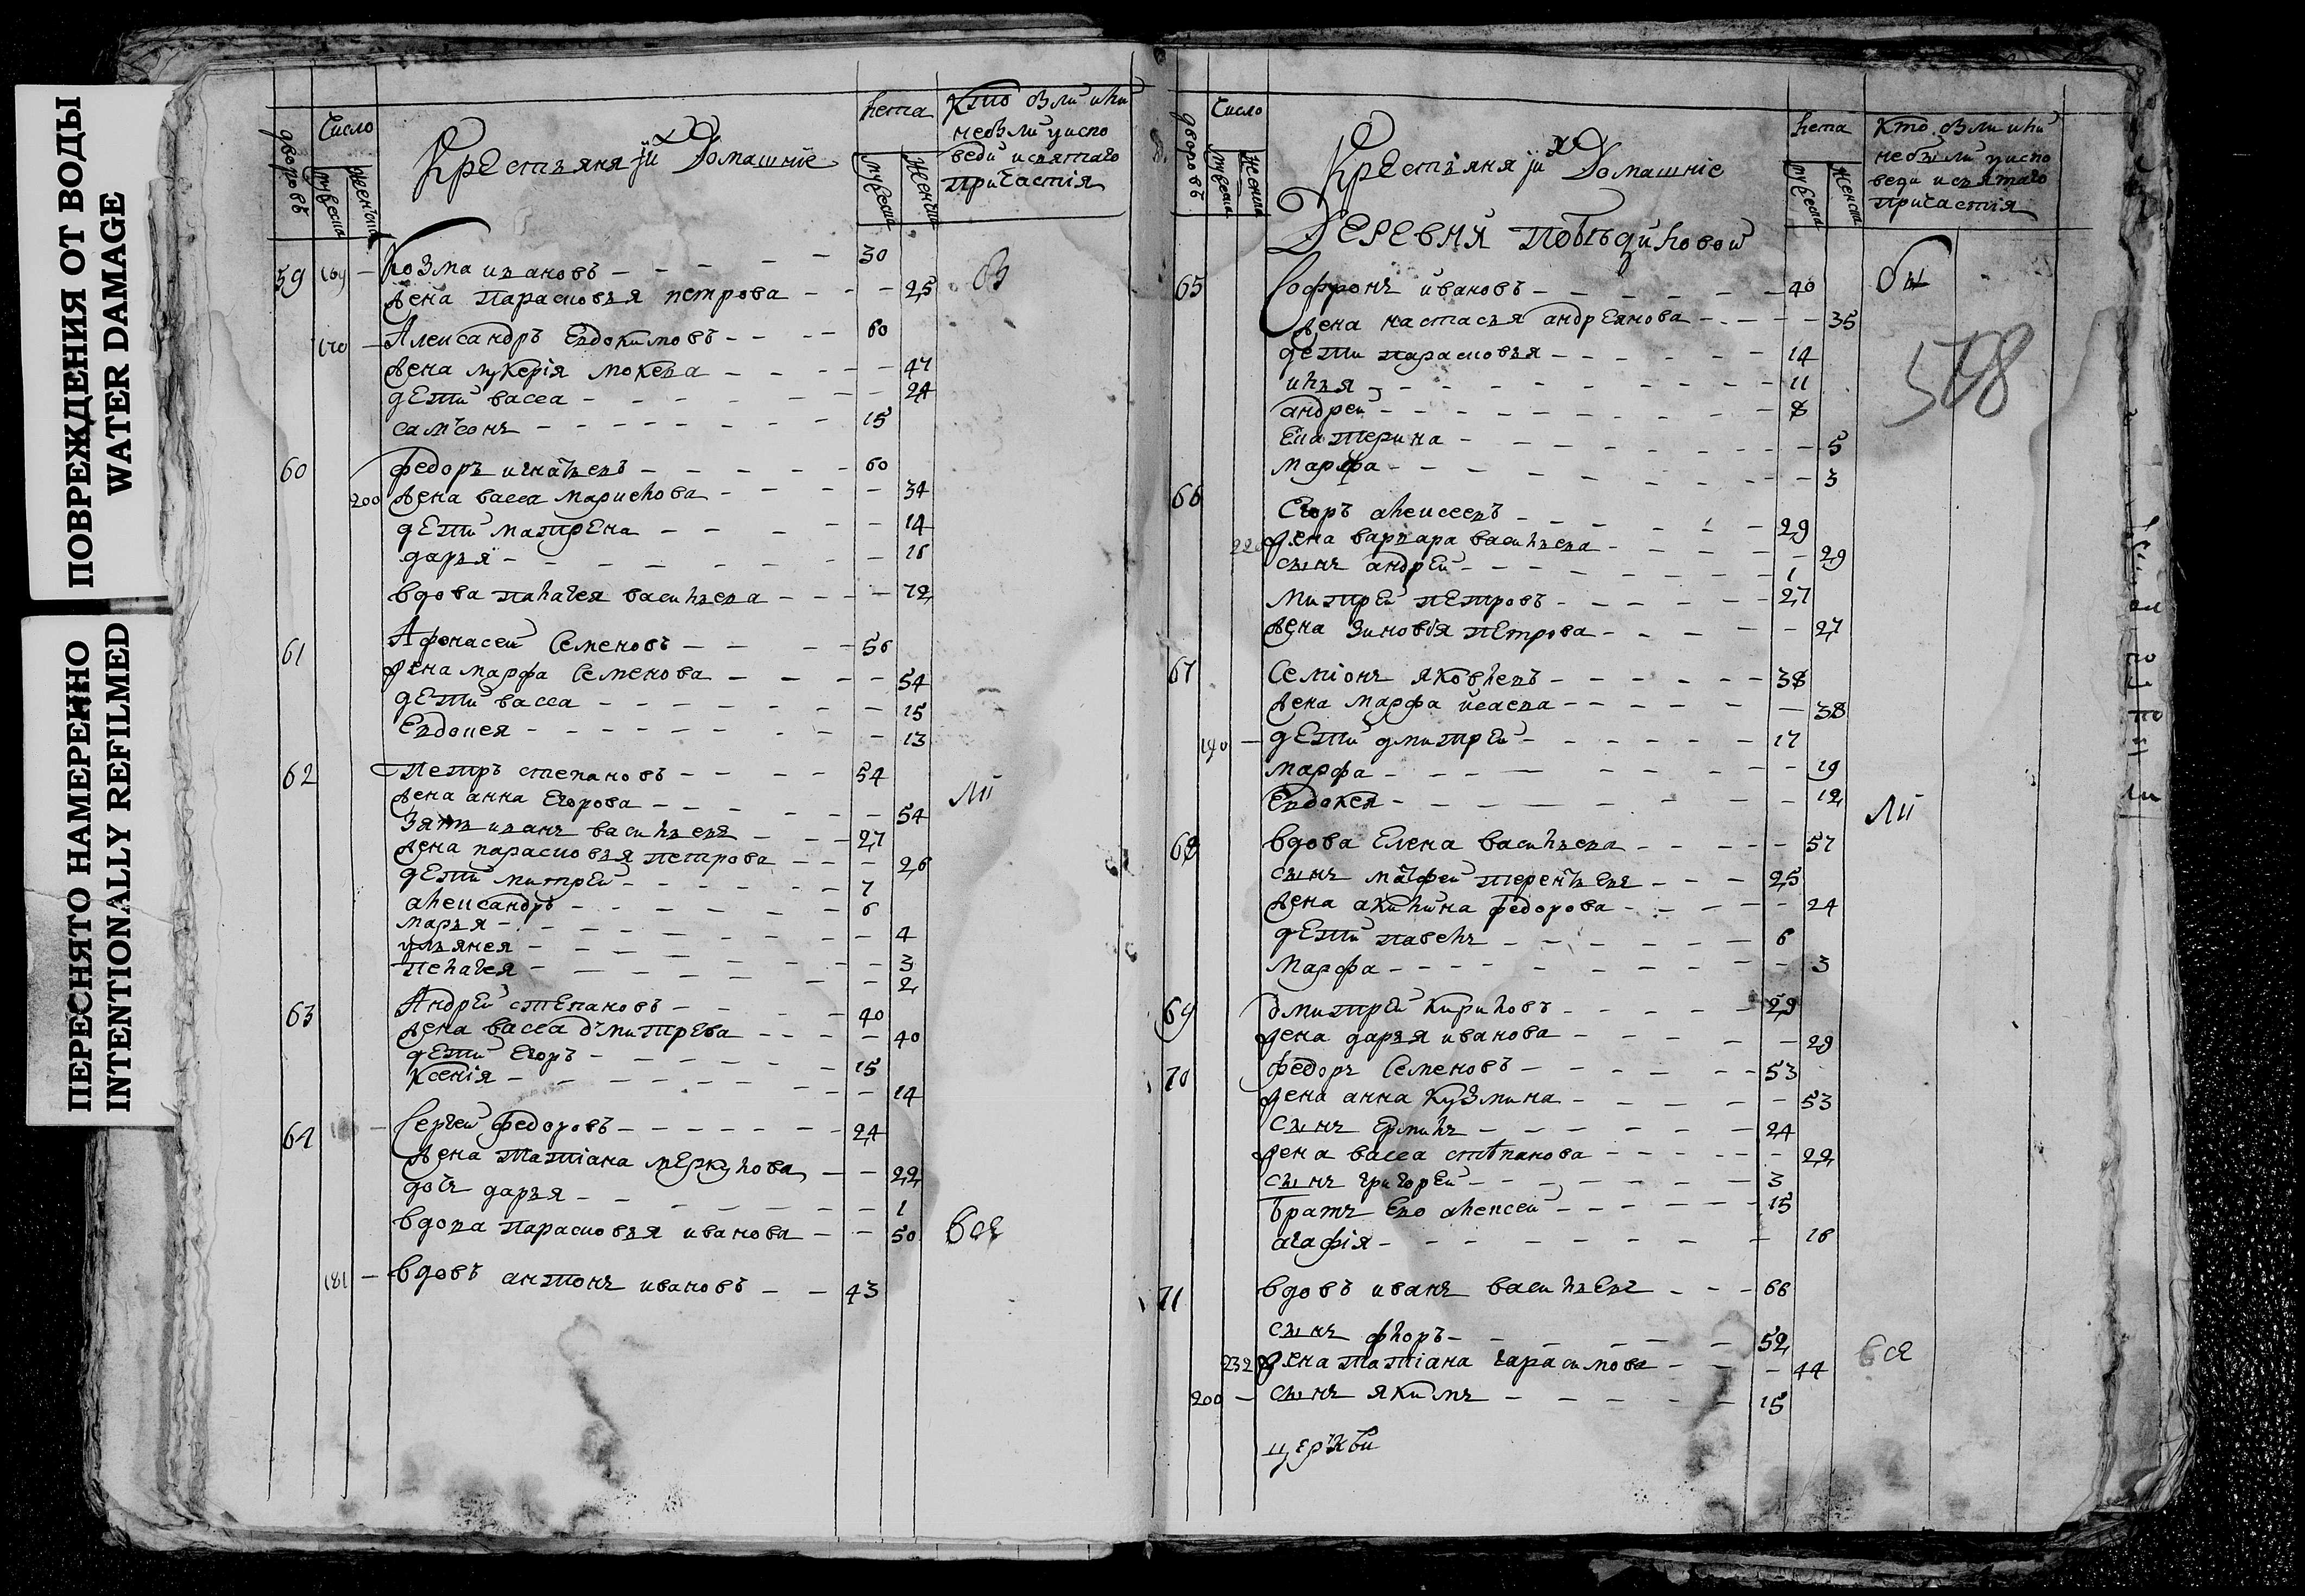 ПОВРЕЖДЕНИЯ ОТ ВОДЫ
WATER DAMAGE
ПЕРЕСНЯТО НАМЕРЕННО
INTENTIONALLY REFILMED
дворовъ
Число
мужеска
женска
Крестьяня и ихъ Домашніе
лета
мужеска
женска
Кто были или
небыли уиспо
веди исвятаго
причастія
59 169 – Козма ивановъ – 30 бы
жена парасковья петрова – 25
170 – Александръ Евдокимовъ – 60
жена лукерія мокева – 47
дети васса – 24
самсонъ – 15
60 федоръ игнатьевъ – 60
200 жена васса – 34
дети матрена – 14
дарья –
вдова палагея васильева – 72
61 Афонасей Семеновъ – 56
жена марфа Семенова – 54
дети васса – 15
Евдокея – 13
62 Петръ степановъ – 54 ли
жена анна Егорова – 54
Зять иванъ васильевъ – 27
жена парасковья петрова – 26
дети митрей – 7
александръ – 6
марья – 4
ульянея – 3
пелагея – 2
63 Андрей степановъ – 40
жена васса дмитрева – 40
дети Егоръ – 15
Ксенія – 14
64 Сергей федоровъ – 24
жена татіана меркулова – 22
дочь дарья – 1
вдова парасковья иванова – 50 все
181 – вдовъ антонъ ивановъ – 43
дворовъ
Число
мужеска
женска
Крестьяня и ихъ Домашніе
лета
мужеска
женска
Кто были или
небыли уиспо
веди исвятаго
причастія
Деревня
65 Софронъ ивановъ – 40 бы
жена настасья андреянова – 35
578
дети парасковья – 14
илья – 11
андрей – 8
Екатерина – 5
марфа – 3
66 Егоръ алексеевъ – 29
220 жена варвара васильева – 29
сынъ андрей – 1
митрей петровъ – 27
жена зиновія петрова – 27
67 Семіонъ яковлевъ – 38
жена марфа исаева – 38
190 – дети дмитрей – 17
марфа – 19
Евдокея – 12
ли
68 вдова Елена васильева – 57
сынъ матфей терентьевъ – 25
жена акилина федорова – 24
дети павелъ – 6
Марфа – 3
69 дмитрей Кириловъ – 29
жена дарья иванова – 29
70 федоръ Семеновъ – 53
жена анна Кузмина – 53
сынъ Ермилъ – 24
жена васса степанова – 22
сынъ григорей – 3
братъ Ево алексей – 15
агафія – 16
71 вдовъ иванъ васильевъ – 66
сынъ флоръ – 52
232 жена татіана гарасимова – 44 все
200 – сынъ якимъ – 15
церкви